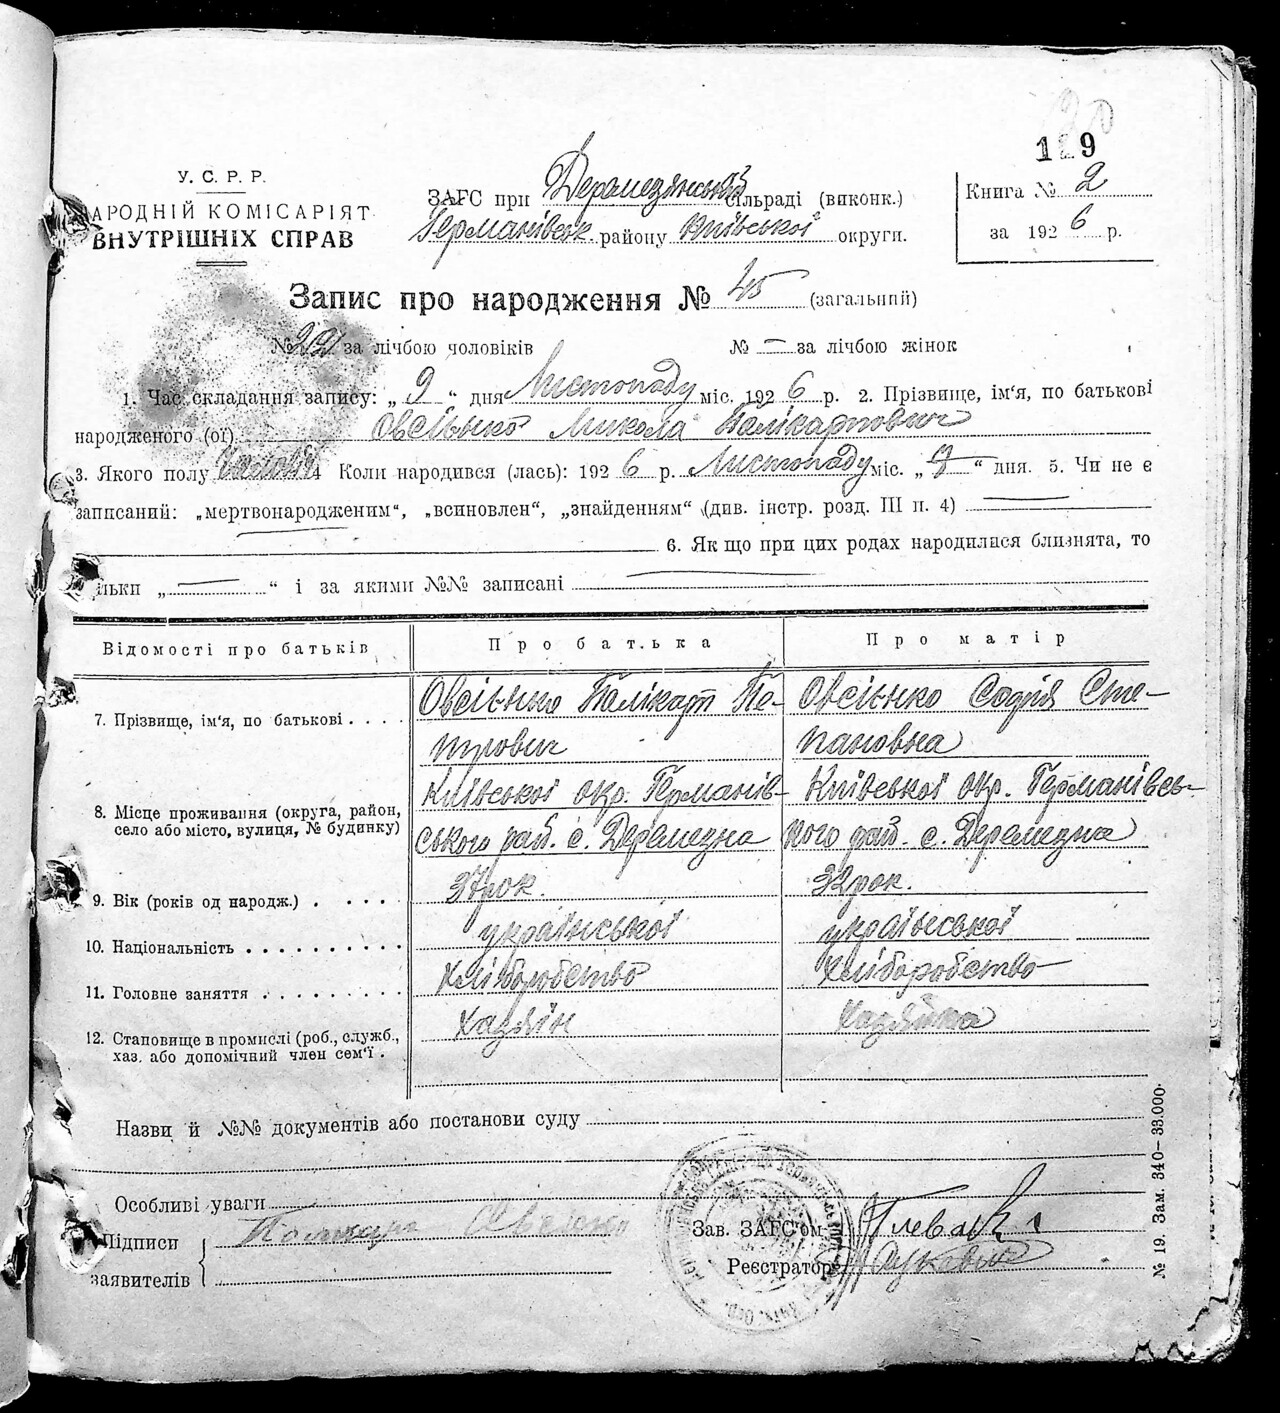 129
У. С. Р. Р.
НАРОДНІЙ КОМІСАРІЯТ
ВНУТРІШНІХ СПРАВ
ЗАГС при Деремезянській сільраді (виконк.)
Германівськ. району Київської округи.
Книга № 2
за 1926 р.
Запис про народження № 45 (загальний)
№ 22 за лічбою чоловіків № — за лічбою жінок
1. Час складання запису: „ 9 “ дня Листопаду міс. 1926 р. 2. Прізвище, ім‘я, по батькові
народженого (ої) Овсієнко Микола Полікарпович
3. Якого полу 4 Коли народився (лась): 1926 р. Листопаду міс. „ “ дня. 5. Чи не є
записаний: „мертвонародженим“, „всиновлен“, „знайденням“ (див. інстр. розд. III п. 4)
6. Як що при цих родах народилися близнята, то
ільки „ — “ і за якими №№ записані
Відомості про батьків
Про батька
Про матір
7. Прізвище, ім‘я, по батькові . . . .
Овсієнко Полікарп Пе-
трович
Овсієнко Софія Сте-
пановна
8. Місце проживання (округа, район,
село або місто, вулиця, № будинку)
Київської окр. Германів-
ського рай. с. Деремезна
Київської окр. Германівсь-
кого рай. с. Деремезна
9. Вік (років од народж.) . . . . .
37 рок.
32 рок.
10. Національність . . . . . . . . . .
української
української
11. Головне заняття . . . . . . . . .
Хліборобство
Хліборобство
12. Становище в промислі (роб., служб.,
хаз. або допомічний член сем‘ї .
Хазяїн
Хазяйка
Назви й №№ документів або постанови суду
Особливі уваги
Підписи
заявителів
Зав. ЗАГС‘ом
Реєстратор
№ 19. Зам. 340— 38.000.